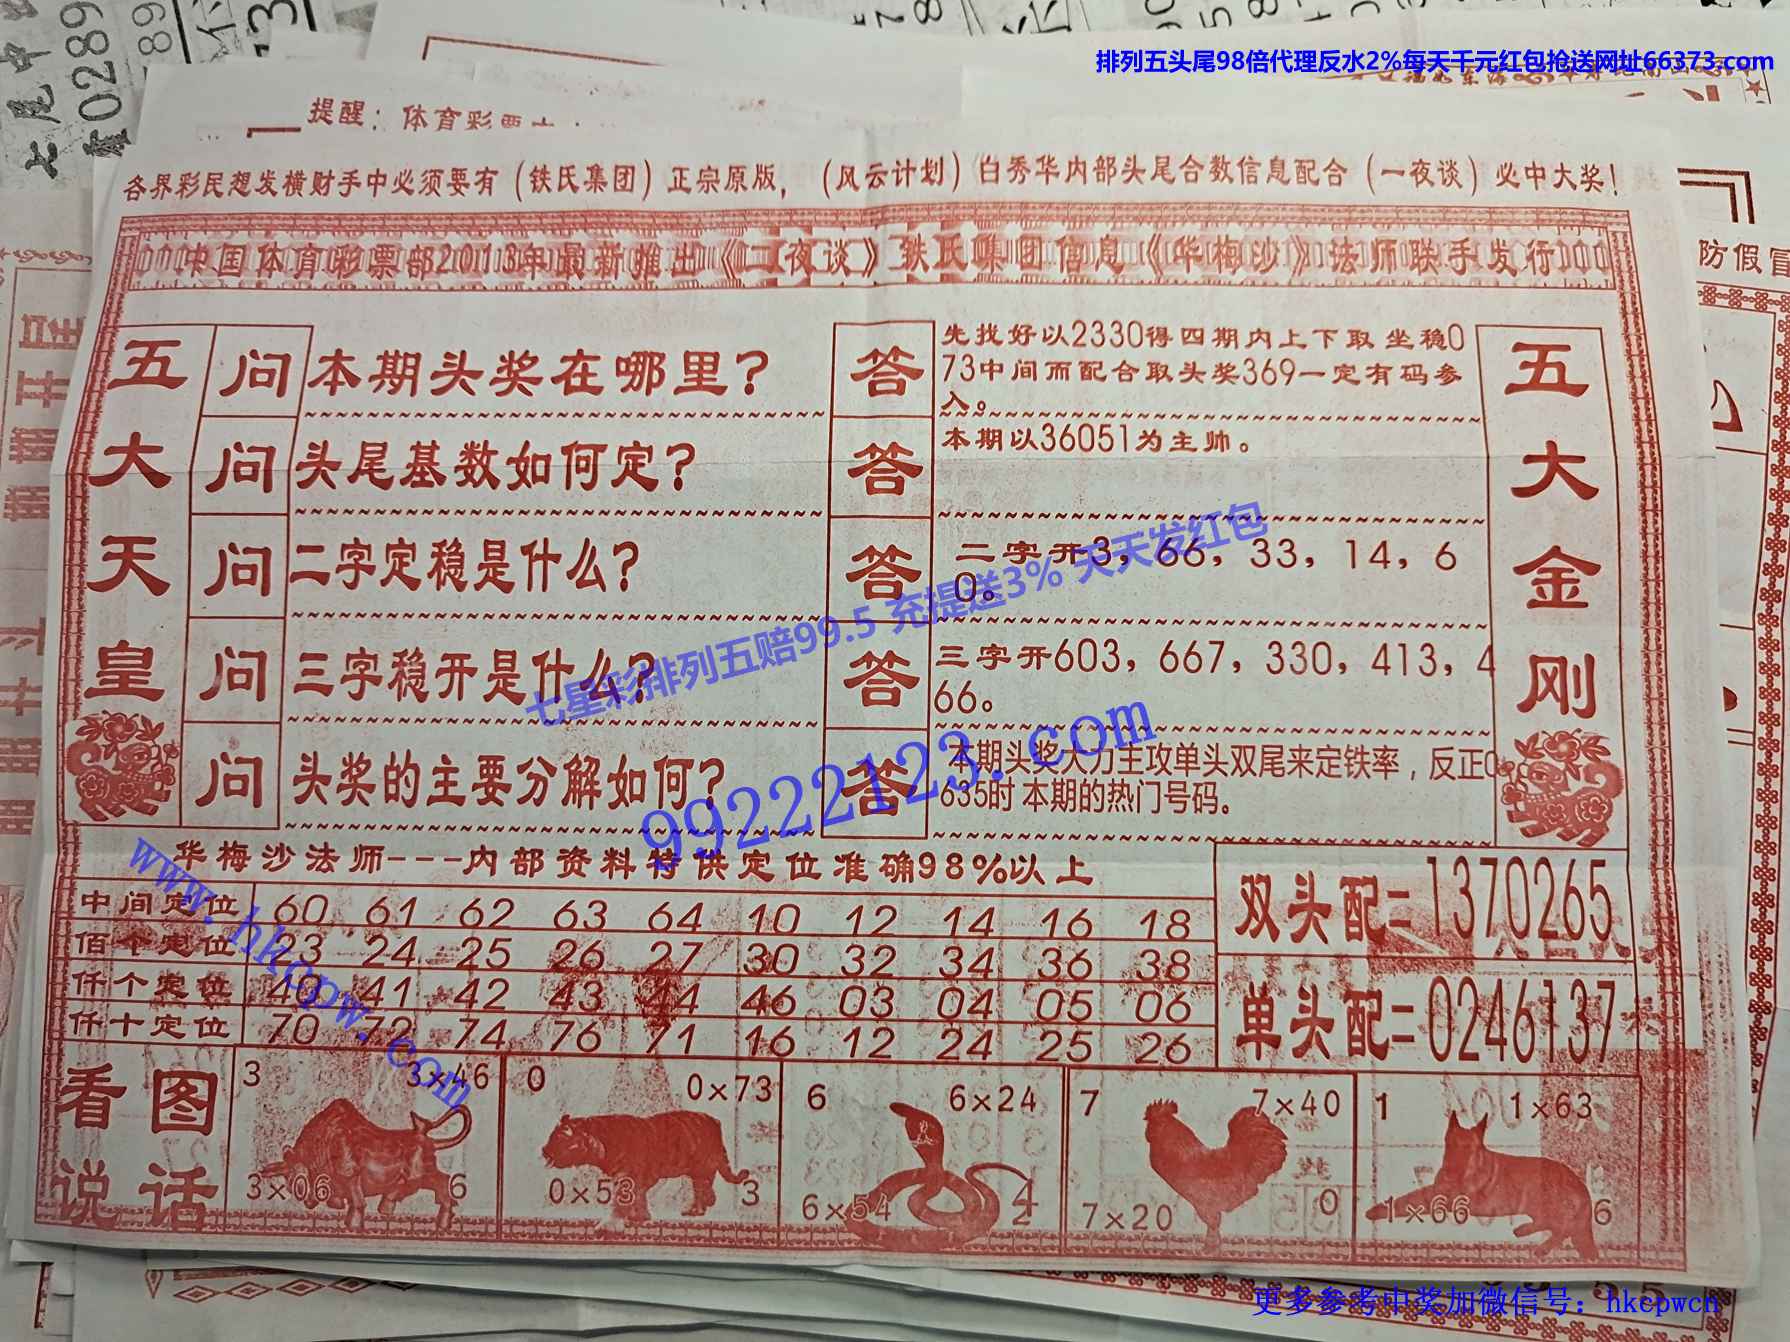 排列五头尾98倍代理反水2%每天千元红包抢送网址66373.com
七尾中
0289
提醒：体育彩票
各界彩民想发横财手中必须要有（铁氏集团）正宗原版，（风云计划）白秀华内部头尾合数信息配合（一夜谈）必中大奖！
防假冒
中国体育彩票部2013年最新推出《一夜谈》铁氏集团信息《华梅沙》法师联手发行
五大天皇
问 本期头奖在哪里？
答 先找好以2330得四期内上下取坐稳0
73中间而配合取头奖369一定有码参
入。
问 头尾基数如何定？
答 本期以36051为主帅。
问 二字定稳是什么？
答 二字开3，66，33，14，6
0。
问 三字稳开是什么？
答 三字开603，667，330，413，4
66。
问 头奖的主要分解如何？
答 本期头奖大力主攻单头双尾来定铁率，反正0
635时 本期的热门号码。
五大金刚
七星彩排列五赔99.5 充提送3% 天天发红包
99222123.com
www.hkcpw.com
华梅沙法师---内部资料特供定位准确98%以上
中间定位 60 61 62 63 64 10 12 14 16 18
佰个定位 23 24 25 26 27 30 32 34 36 38
仟个定位 40 41 42 43 44 46 03 04 05 06
仟十定位 70 72 74 76 71 16 12 24 25 26
双头配=1370265
单头配=0246137
看图
说话
3 3×46
3×06 6
0 0×73
0×53 3
6 6×24
6×54 4
2
7 7×40
7×20 0
1 1×63
1×66 6
更多参考中奖加微信号：hkcpwcn